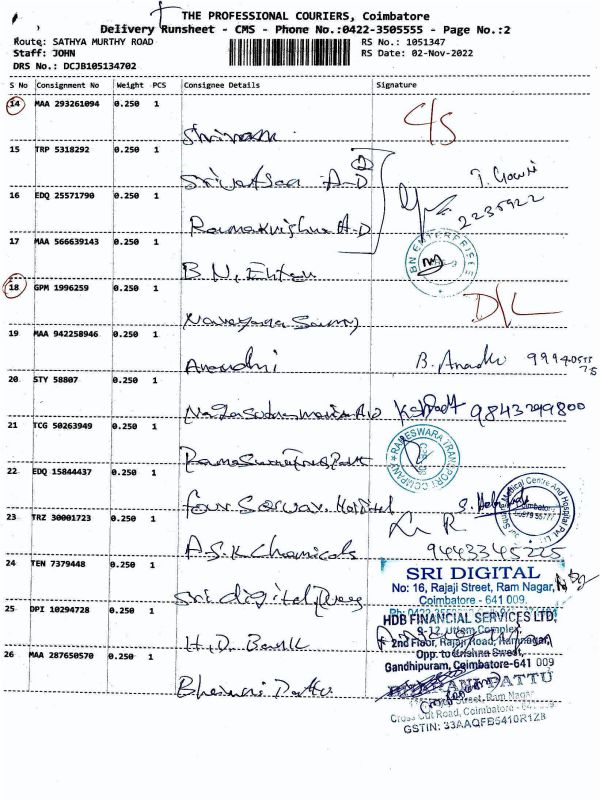 THE PROFESSIONAL COURIERS, Coimbatore
Delivery Runsheet - CMS - Phone No.:0422-3505555 - Page No.:2
Route: SATHYA MURTHY ROAD
RS No.: 1051347
Staff: JOHN
RS Date: 02-Nov-2022
DRS No.: DCJB105134702
S No Consignment No Weight PCS Consignee Details Signature
14 MAA 293261094 0.250 1
C/S
15 TRP 5318292 0.250 1
A-D
16 EDQ 25571790 0.250 1
2235922
Ramakrishna A-D
17 MAA 566639143 0.250 1
BN ENTERPRISES
B N.
18 GPM 1996259 0.250 1
D/L
Narayana Samy
19 MAA 942258946 0.250 1
Anandhi
20 STY 58807 0.250 1
9843249800
21 TCG 50263949 0.250 1
RAMESWARA TRANSPORT COMPANY
22 EDQ 15844437 0.250 1
Four Hospital
Medical Centre And Hospital Pvt Ltd
23 TRZ 30001723 0.250 1
A.S.K Chemicals
9443345225
24 TEN 7379448 0.250 1
SRI DIGITAL
No: 16, Rajaji Street, Ram Nagar,
Coimbatore - 641 009.
Sri digital
25 DPI 10294728 0.250 1
HDB FINANCIAL SERVICES LTD.
9-12, Uttam Complex,
2nd Floor, Rajaji Road, Ramnagar,
Opp. to Krishna Sweet,
Gandhipuram, Coimbatore-641 009
H.D. Bank
26 MAA 287650570 0.250 1
PATTU
Street, Ram Nagar
Cross Cut Road, Coimbatore
GSTIN: 33AAQFB5410R1ZB